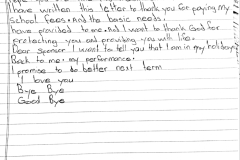 I have written this letter to thank you for paying my
school fees. And the basic needs.
have provided to me. And I want to thank God for
protecting you and providing you with life.
Dear sponsor I want to tell you that I am in my holidays
Back to me. my performance.
I promise to do better next term.
I love you
Bye Bye
Good Bye